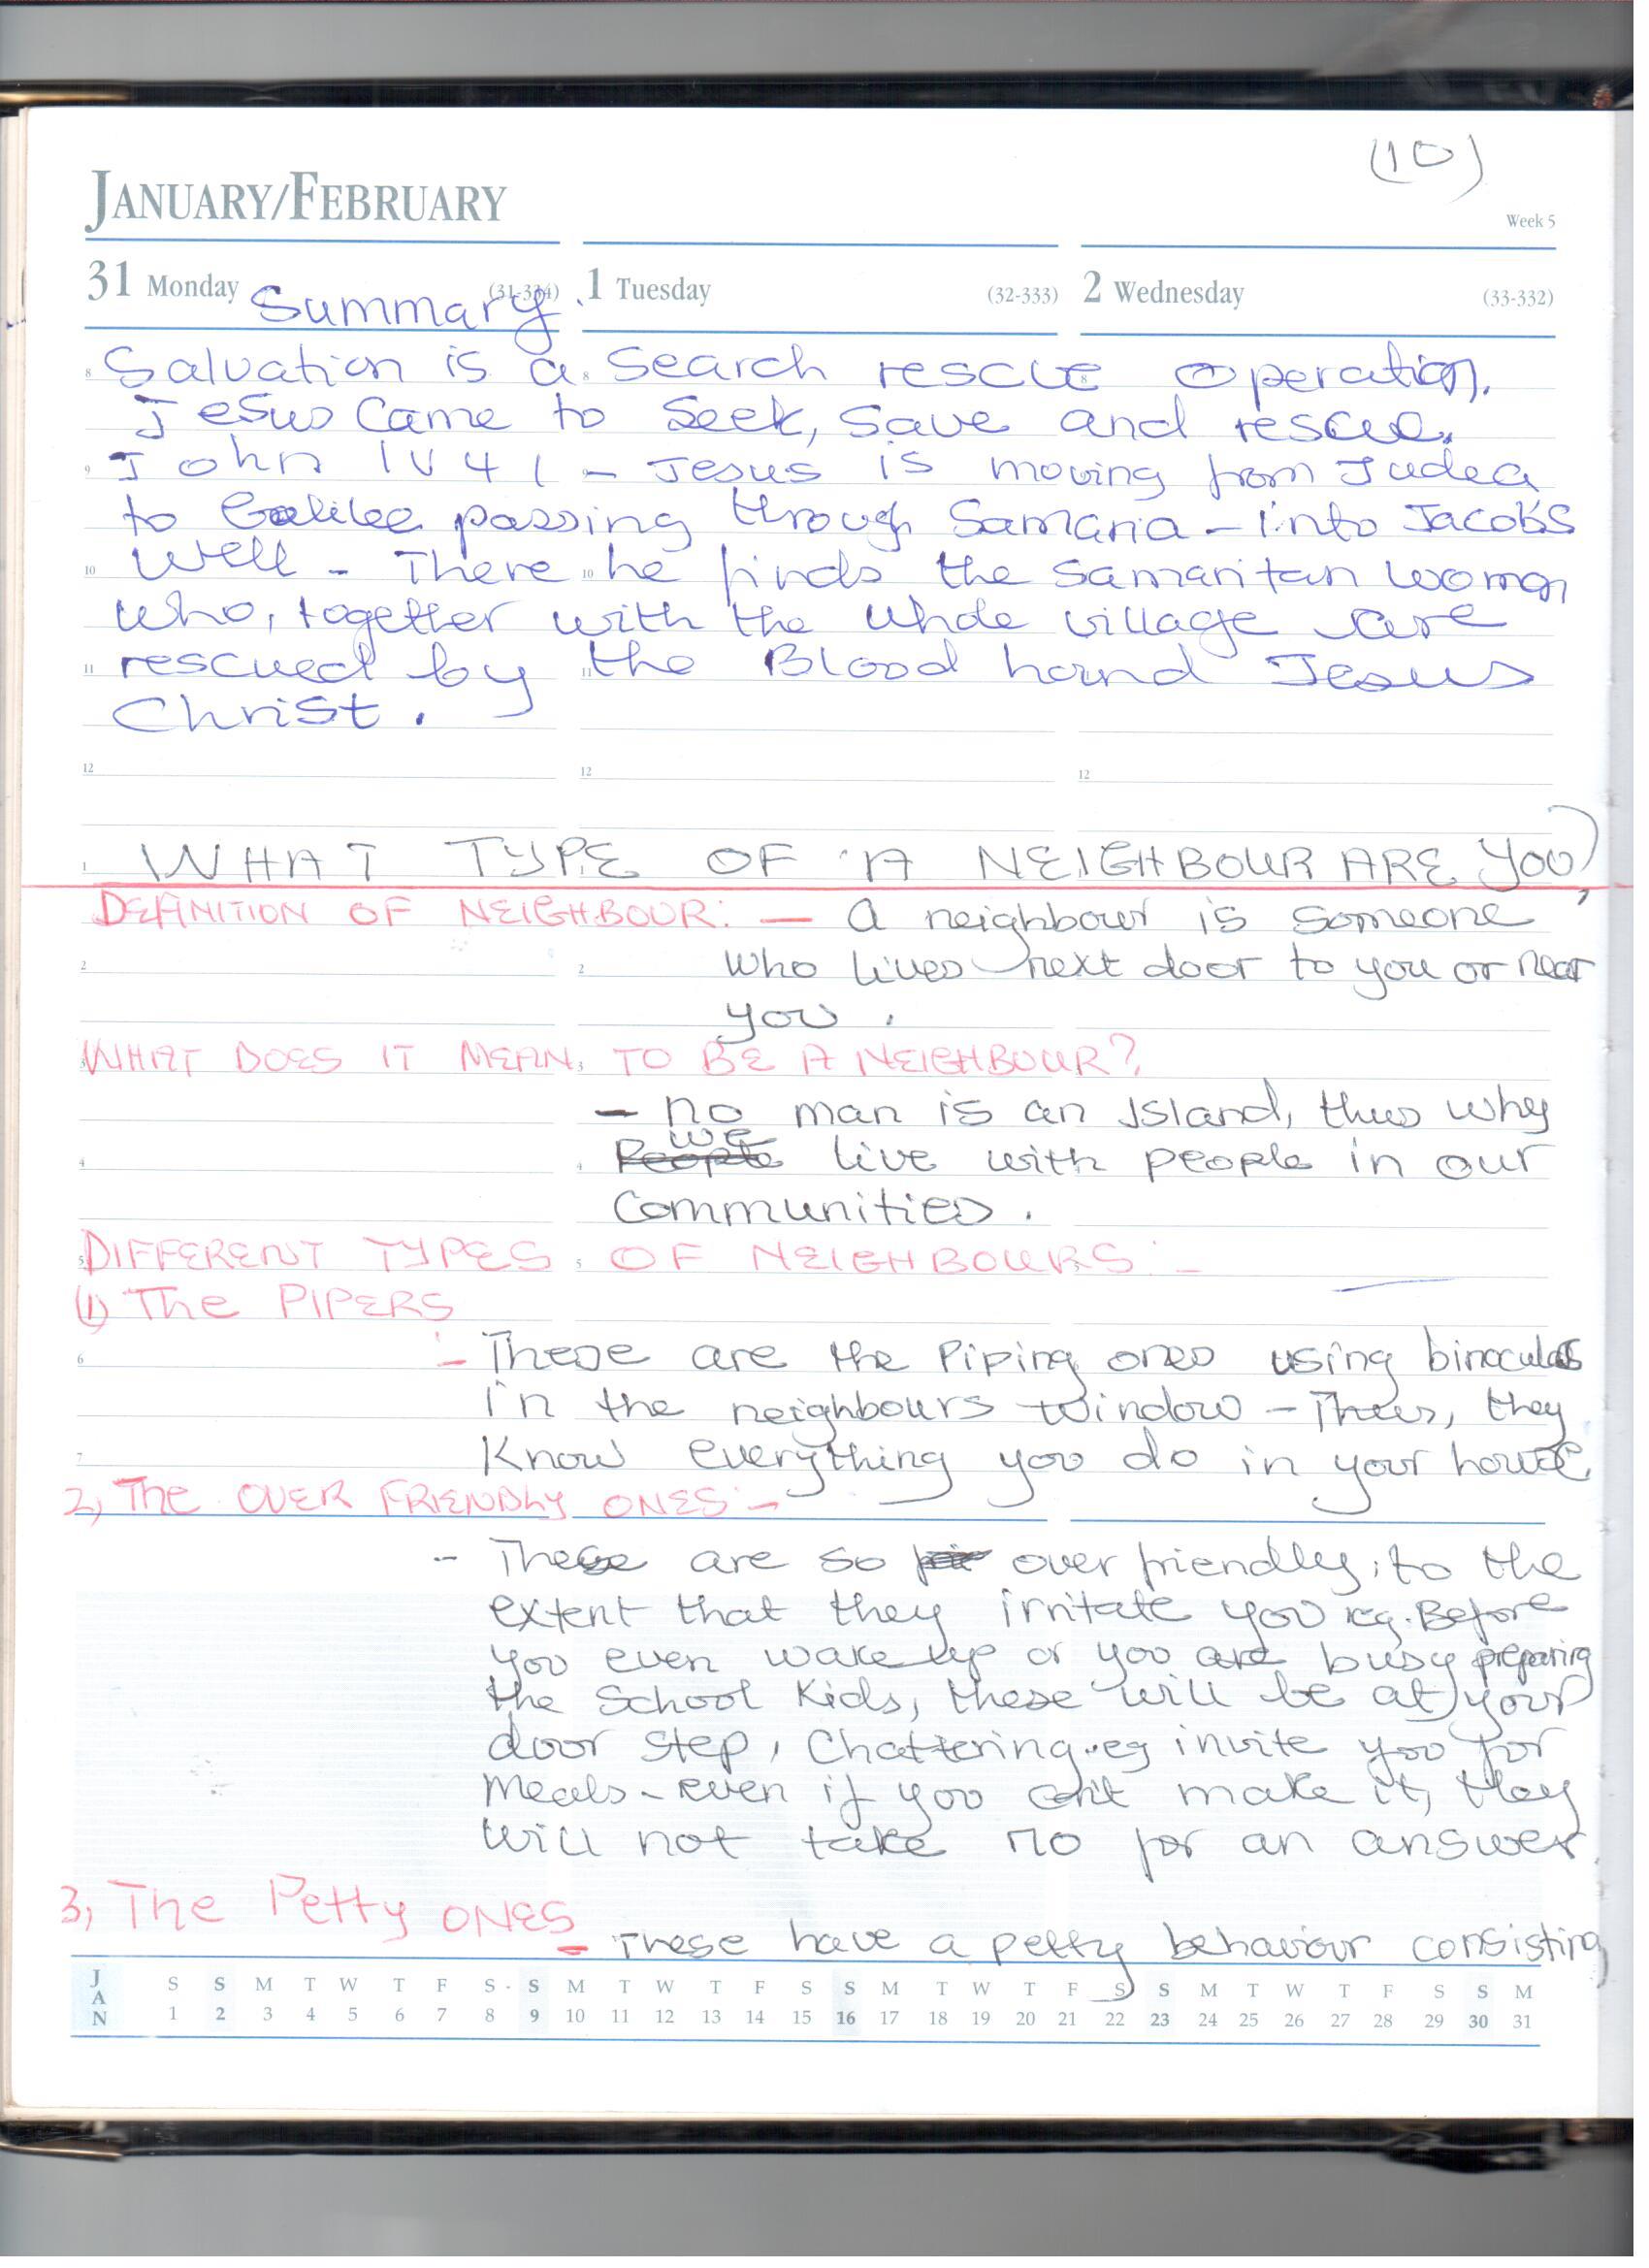 (10)
JANUARY/FEBRUARY
Week 5
31 Monday (31-334) 1 Tuesday (32-333) 2 Wednesday (33-332)
Summary.
8 Salvation is a 8 search rescue 8 operation.
Jesus came to seek, save and rescue.
9 John 1V 41 - Jesus is moving from Judea
to Galilee passing through Samaria - into Jacob's
10 Well - There 10 he finds the samaritan woman
who, together with the whole village are
11 rescued by 11 the Blood hound Jesus
Christ.
12 12 12
1 WHAT TYPE OF A NEIGHBOUR ARE YOU?
DEFINITION OF NEIGHBOUR: - A neighbour is someone
2 2 who lives next door to you or near
you.
3 WHAT DOES IT MEAN 3 TO BE A NEIGHBOUR?
- no man is an Island, thus why
we
4 4 People live with people in our
Communities.
5 DIFFERENT TYPES 5 OF NEIGHBOURS :-
(1) The PIPERS
6 :- These are the Piping ones using binoculars
in the neighbours window - Thus, they
7 Know everything you do in your house.
2, The OVER FRIENDLY ONES :-
- These are so over friendly, to the
extent that they irritate you eg. Before
you even wake up or you are busy preparing
the School Kids, these will be at your
door step, Chattering. eg invite you for
Meals - even if you can't make it, they
will not take no for an answer.
3, The Petty ONES - These have a petty behaviour consisting
JAN
S S M T W T F S S M T W T F S S M T W T F S S M T W T F S S M
1 2 3 4 5 6 7 8 9 10 11 12 13 14 15 16 17 18 19 20 21 22 23 24 25 26 27 28 29 30 31